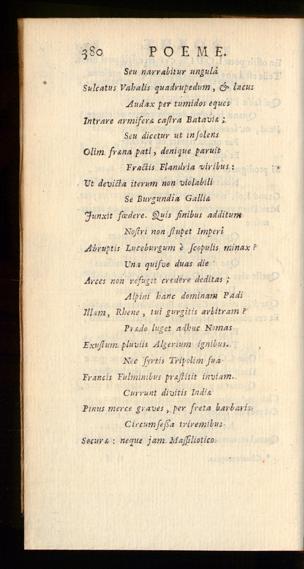 380 POEME.
Seu narrabitur ungulâ
Sulcatus Vahalis quadrupedum, & lacus
Audax per tumidos eques
Intrare armifera castra Batavia;
Seu dicetur ut insolens
Olim fræna pati, denique paruit
Fractis Flandria viribus:
Ut devicta iterum non violabili
Se Burgundia Gallia
Junxit fœdere. Quis finibus additum
Nostri non stupet Imperî
Abruptis Luceburgum è scopulis minax?
Una quisve duas die
Arces non refuget credere deditas;
Alpini hanc dominam Padi
Illam, Rhene, tui gurgitis arbitram?
Prædo luget adhuc Nomas
Exustum pluviis Algerium ignibus.
Nec syrtis Tripolim sua
Francis Fulminibus præstitit inviam.
Currunt divitis Indiæ
Pinus merce graves, per freta barbaris
Circumsessa triremibus
Securæ: neque jam Massiliotico